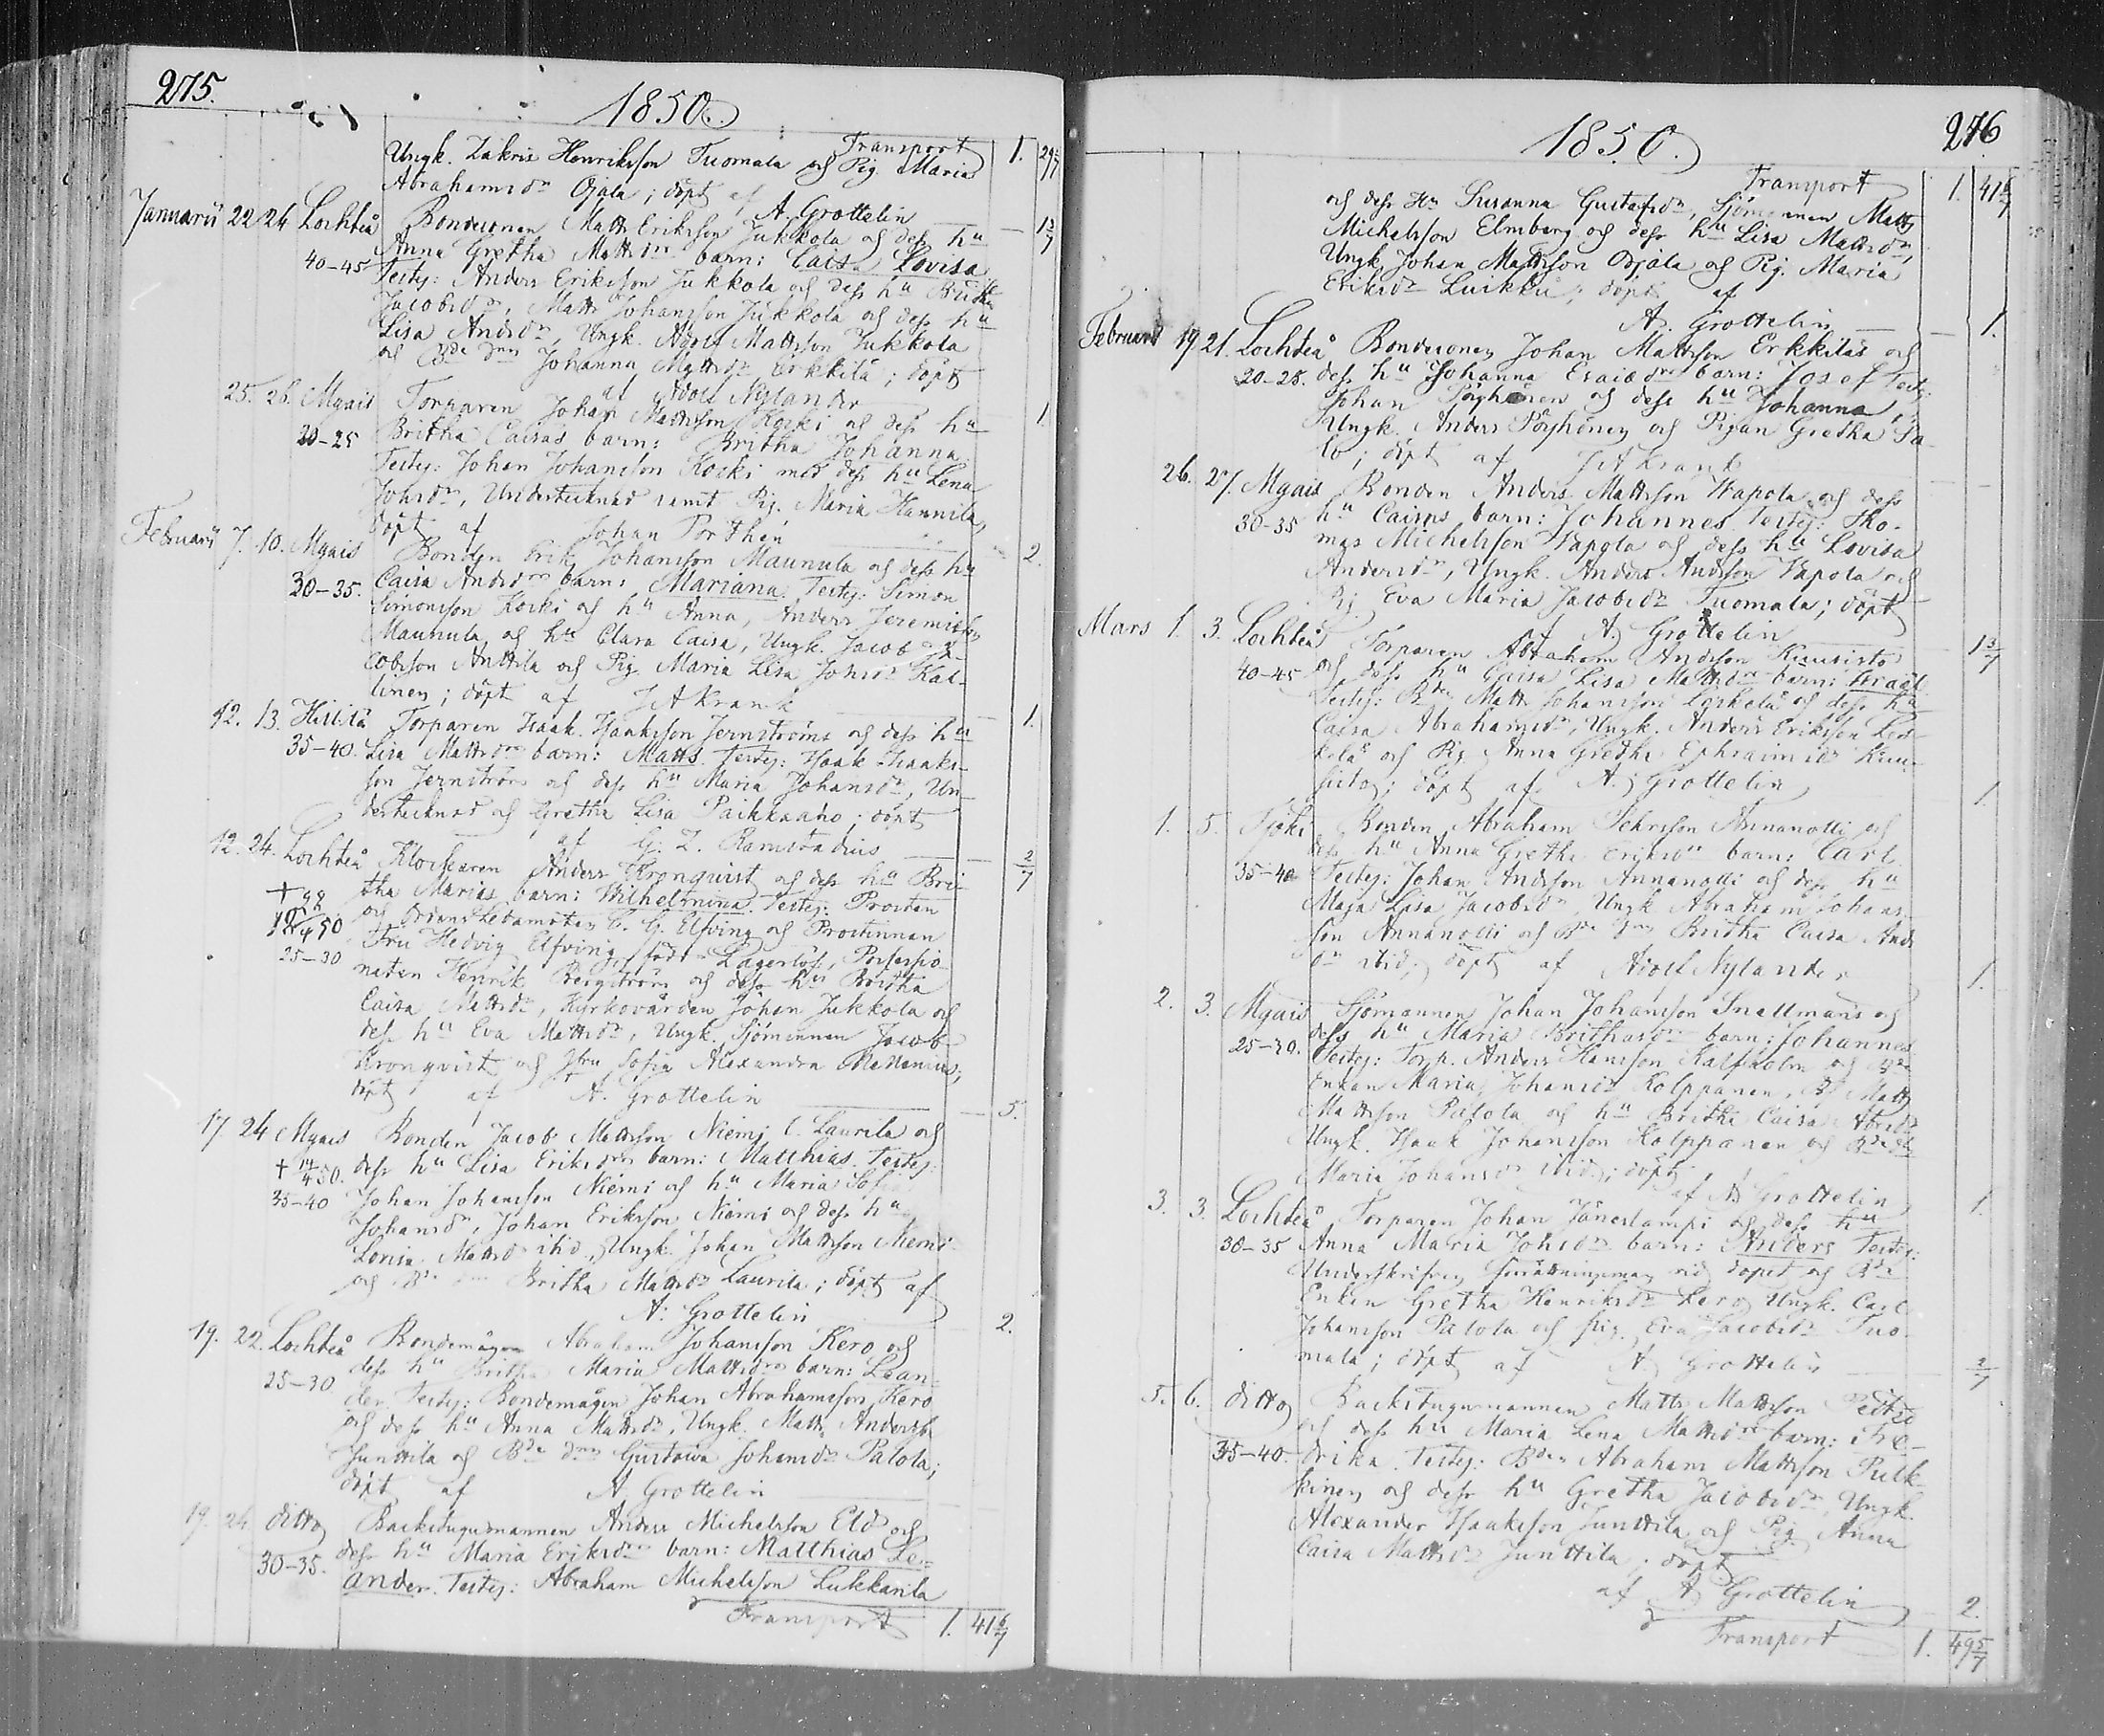 275.
1850.
Transport 1. 29 5/7
Ungk. Zakris Henriksson Tuomala och Pig. Maria
Abrahamsdr Ojala; döpt af A. Grottelin 1 3/7
Januarii 22 24 Lochteå Bondesonen Matts Eriksson Jukkola och dess hu
Anna Gretha Mattsdrs barn: Caisa Lovisa
40-45 Testes: Anders Eriksson Jukkola och dess hu Britha
Jacobsdr, Matts Johansson Jukkola och dess hu
Lisa Andsdr, Ungk. Adolf Mattsson Jukkola
och Bde Johanna Mattsdr Erkkilä; döpt
af Adolf Nylander 1
25. 26. Mgais Torparen Johan Mattsson Koski och dess hu
20-25 Britha Caisas barn: Britha Johanna.
Testes: Johan Johansson Koski med dess hu Lena
Johsdr, Undertecknad samt Pig. Maria Hannila,
döpt af Johan Porthén 2.
Februarii 7. 10. Mgais Bonden Erik Johansson Maunula och dess hu
30-35. Caisa Andsdrs barn: Mariana. Testes: Simon
Simonsson Koski och hu Anna, Anders Jeremiss
Maunula och hu Clara Caisa, Ungk. Jacob Ja-
cobsson Anttila och Pig. Maria Lisa Johsdr Kal-
linen; döpt af J A Krank 1.
12. 13. Hillilä Torparen Isaak Isaaksson Jernströms och dess hu
35-40. Lisa Mattsdrs barn: Matts. Testes: Isaak Isaaks-
son Jernström och dess hu Maria Johansdr, Un-
dertecknad och Gretha Lisa Paikkaaho; döpt
af G. Z. Ramstadius 2/7
12. 24. Lochteå Klockaren Anders Kronquist och dess hu Bri-
tha Marias barn: Wilhelmina. Testes: Prosten
och Ordensledamoten C. G. Elfving och Prostinnan
25-30 Fru Hedvig Elfving, född Lagerlöf, Possessio-
naten Henrik Bergström och dess hu Britha
Caisa Mattsdr, Kyrkovärden Johan Jukkola och
dess hu Eva Mattsdr, Ungk. Sjömannen Jacob
Kronqvist och Sofia Alexandra
döpt af A. Grottelin 5.
17 24 Mgais Bonden Jacob Mattsson Niemi l. Laurila och
† 14/4 50. dess hu Lisa Eriksdrs barn: Matthias. Testes:
35-40 Johan Johansson Niemi och hu Maria Sofia
Johansdr, Johan Eriksson Niemi och dess hu
Lovisa Mattsdr ibid., Ungk. Johan Mattsson Niemi
och Britha Mattsdr Laurila; döpt af
A. Grottelin 2.
19. 22. Lochteå Bondemågen Abraham Johansson Kero och
dess hu Britha Maria Mattsdrs barn: Lean-
25-30 der. Testes: Bondemågen Johan Abrahamsson Kero
och dess hu Anna Mattsdr, Ungk. Matts Andersson
Junttila och Bde Gustava Johansdr Palola;
döpt af A. Grottelin
19. 24 ditto Backstugumannen Anders Michelsson Eld och
30-35. dess hu Maria Eriksdrs barn: Matthias Le-
ander. Testes: Abraham Michelsson Lukkarila
Transport 1. 41 6/7
276
1850.
Transport 1. 41 6/7
och dess Hu Susanna Gustafsdr, Sjömannen Matts
Michelsson Elmberg och dess hu Lisa Mattsdr,
Ungk. Johan Mattsson Ojala och Pig. Maria
Eriksdr Luikku; döpt af
A. Grottelin 1.
Februarii 19 21. Lochteå Bondesonen Johan Mattsson Erkkiläs och
20-25. dess hu Johanna Esaiædrs barn: Josef Testes:
Johan Pöyhönen och dess hu Johanna,
Ungk. Anders Pöyhönen och Pigan Gretha Sa-
lo; döpt af J A Krank
26. 27. Mgais Bonden Anders Mattsson Wapola och dess
30-35 hu Caisas barn: Johannes. Testes: Tho-
mas Michelsson Wapola och dess hu Lovisa
Andersdr, Ungk. Anders Andsson Wapola och
Pig Eva Maria Jacobsdr Tuomala; döpt
af A. Grottelin 1 3/7
Mars 1. 3. Lochteå Torparen Abraham Andsson Kiuusisto
40-45 och dess hu Caisa Lisa Mattsdrs barn: Israël
Testes: Matts Johansson Leskelä och dess hu
Caisa Abrahamsdr, Ungk. Anders Eriksson Les-
kelä och Pig. Anna Gretha Ephraimsdr Kuu-
sisto; döpt af A. Grottelin 1.
1. 5. Bonden Abraham Johsson Annanolli och
dess hu Anna Gretha Eriksdrs barn: Carl.
35-40 Testes: Johan Andsson Annanolli och dess hu
Maja Lisa Jacobsdr, Ungk Abraham Johans-
son Annanolli och Bde Britha Caisa Ands
dr ibid; döpt af Adolf Nylander 1.
2. 3. Mgais Sjömannen Johan Johansson Snellmans och
dess hu Maria Brithas barn: Johannes
25-30. Testes: Torp. Anders Hansson Kalfholm och
Enkan Maria Johansdr Kolppanen, Matts
Mattsson Palola och hu Britha Caisa Abrsdr
Ungk. Isaak Johansson Kolppanen och
Maria Johansdr ibid.; döpt
af A Grottelin 1.
3. 3. Lochteå Torparen Johan Jäneslampi och dess hu
30-35 Anna Maria Johsdrs barn: Anders Testes:
Underskrifven förrättningsman vid dopet och
Enkan Gretha Henriksdr Kero, Ungk. Carl
Johansson Palola och pig. Eva Jacobsdr Tuo-
mala; döpt af A Grottelin 2/7
5. 6. ditto Backstugumannen Matts Mattsson
och dess hu Maria Lena Mattsdrs barn: Fre-
35-40. drika. Testes: Abraham Mattsson Pulk-
kinen och dess hu Gretha Jacobsdr, Ungk.
Alexander Isaaksson Junttila och Pig. Anna
Caisa Mattsdr Junttila; döpt
af A Grottelin 2.
Transport 1. 49 5/7